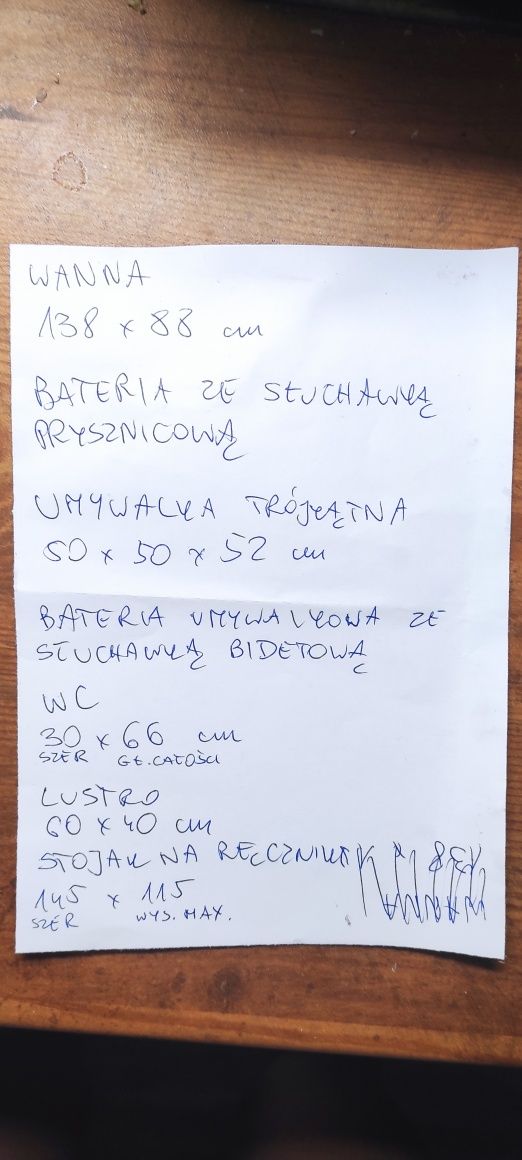 WANNA
138 x 88 cm
BATERIA ZE SŁUCHAWKĄ
PRYSZNICOWĄ
UMYWALKA TRÓJKĄTNA
50 x 50 x 52 cm
BATERIA UMYWALKOWA ZE
SŁUCHAWKĄ BIDETOWĄ
WC
30 x 66 cm
SZER GŁ. CAŁOŚCI
LUSTRO
60 x 40 cm
STOJAK NA RĘCZNIKI
145 x 115
SZER WYS. MAX.